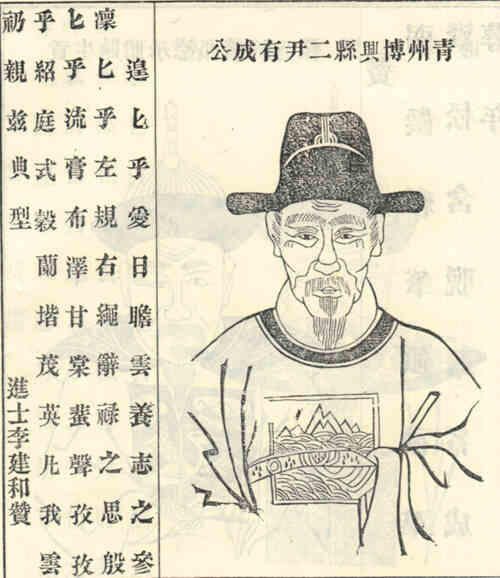 青州博興縣二尹有成公
遑匕乎愛日瞻雲養志之參
凜匕乎左規右繩辭祿之思殷
匕乎流膏布澤甘棠蜚聲孜孜
乎紹庭式穀蘭堦茂英凡我雲
礽親玆典型
進士李建和贊